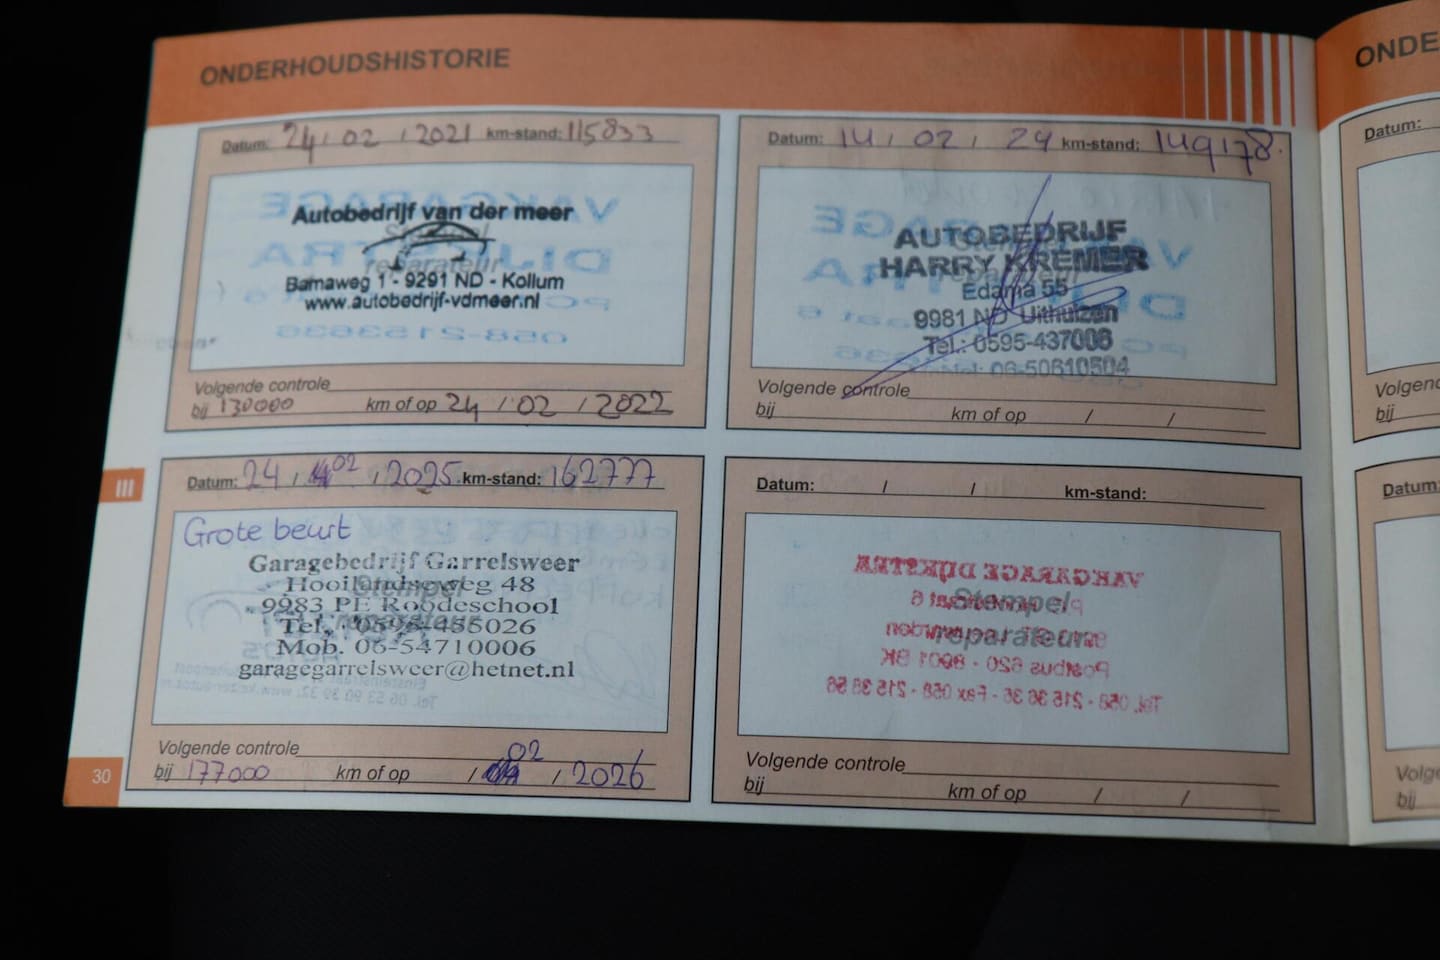 ONDERHOUDSHISTORIE
Datum: 24 / 02 / 2021 km-stand: 115833
Autobedrijf van der meer
Stempel
reparateur
Bamaweg 1 - 9291 ND - Kollum
www.autobedrijf-vdmeer.nl
Volgende controle
bij 130000 km of op 24 / 02 / 2022
Datum: 14 / 02 / 24 km-stand: 149178
AUTOBEDRIJF
HARRY KREMER
Edama 55
9981 ND Uithuizen
Tel.: 0595-437008
06-50610504
Volgende controle
bij km of op / /
Datum: 24 / 02 / 2025 km-stand: 162777
Grote beurt
Garagebedrijf Garrelsweer
Hooilandseweg 48
Stempel
9983 PE Roodeschool
Mob. 06-54710006
garagegarrelsweer@hetnet.nl
Volgende controle
bij 177000 km of op / 02 / 2026
Datum: / / km-stand:
VAKGARAGE DIJKSTRA
Stempel
reparateur
Postbus 620 - 8901 BK
Tel. 058 - 215 36 36 - Fax 058 - 215 38 56
Volgende controle
bij km of op / /
III
30
ONDE
Datum:
Volgend
bij
Datum:
Volge
bij